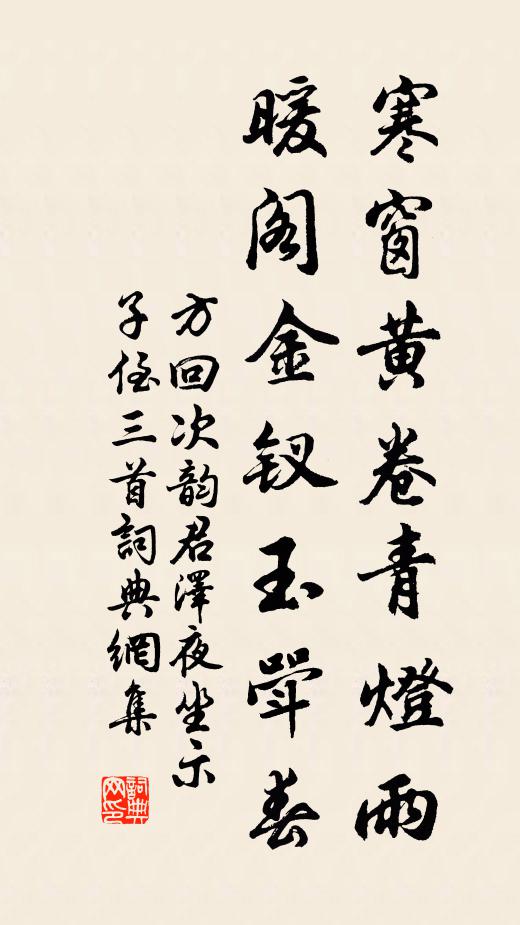 寒窗黄卷青燈雨
暖阁金釵玉斝春
方回次韵君澤夜坐示
子侄三首詞典網集
詞典網印